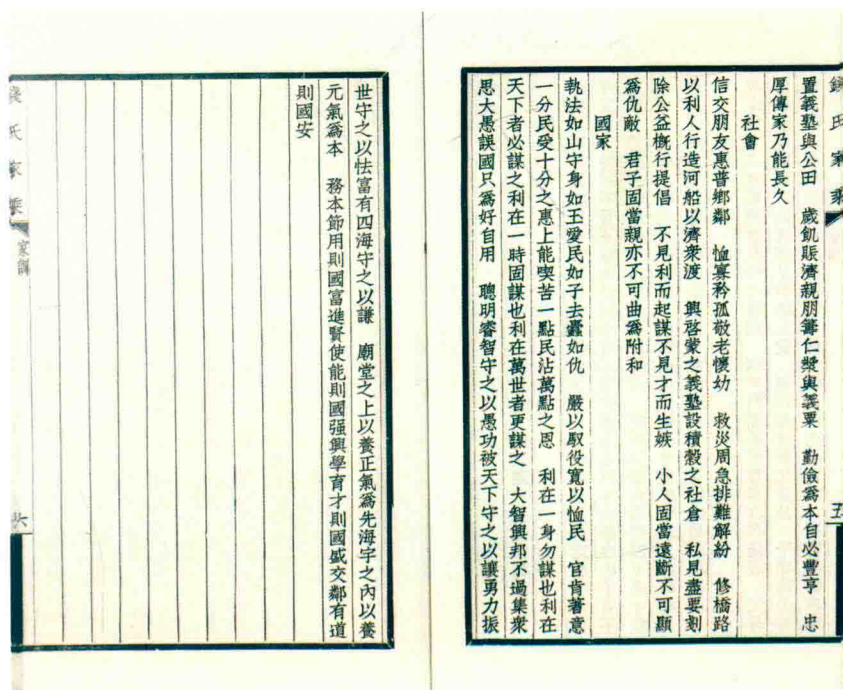 錢氏家乘
五
置義塾與公田 歲飢賑濟親朋籌仁漿與義粟 勤儉爲本自必豐亨 忠
厚傳家乃能長久
社會
信交朋友惠普鄉鄰 恤寡矜孤敬老懷幼 救災周急排難解紛 修橋路
以利人行造河船以濟衆渡 興啓蒙之義塾設積穀之社倉 私見盡要剗
除公益概行提倡 不見利而起謀不見才而生嫉 小人固當遠斷不可顯
爲仇敵 君子固當親亦不可曲爲附和
國家
執法如山守身如玉愛民如子去蠹如仇 嚴以馭役寬以恤民 官肯著意
一分民受十分之惠上能喫苦一點民沾萬點之恩 利在一身勿謀也利在
天下者必謀之利在一時固謀也利在萬世者更謀之 大智興邦不過集衆
思大愚誤國只爲好自用 聰明睿智守之以愚功被天下守之以讓勇力振
世守之以怯富有四海守之以謙 廟堂之上以養正氣爲先海宇之內以養
元氣爲本 務本節用則國富進賢使能則國强興學育才則國盛交鄰有道
則國安
錢氏家乘
家訓
六